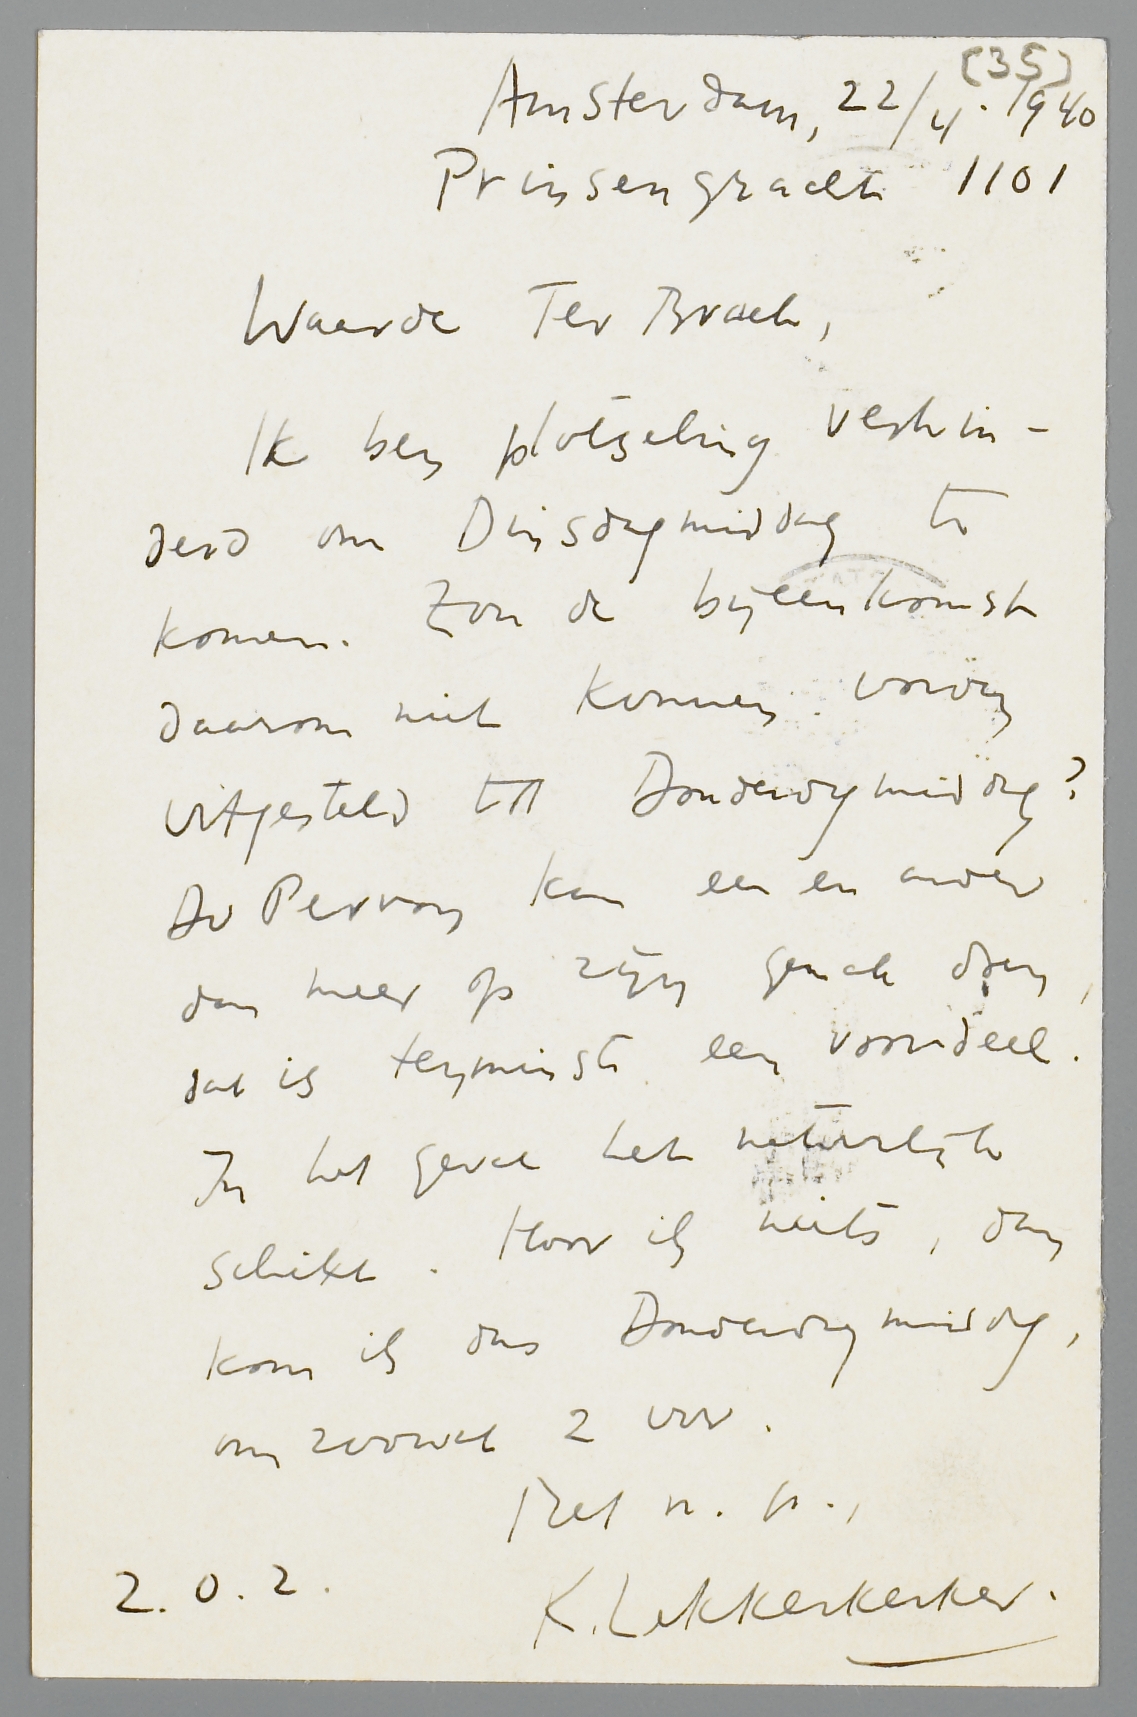 [35]
Amsterdam, 22/4. 1940
Prinsengracht 1101
Waarde Ter Braak,
Ik ben plotseling verhin-
derd om Dinsdagmiddag te
komen. Zou de bijeenkomst
daarom niet kunnen worden
uitgesteld tot Donderdagmiddag?
Du Perron kan een en ander
dan meer op zijn gemak doen,
dat is tenminste een voordeel.
In het geval het natuurlijk
schikt. Hoor ik niets, dan
kom ik dus Donderdagmiddag,
om zoowat 2 uur.
Met v. gr.,
K. Lekkerkerker.
2.0.2.